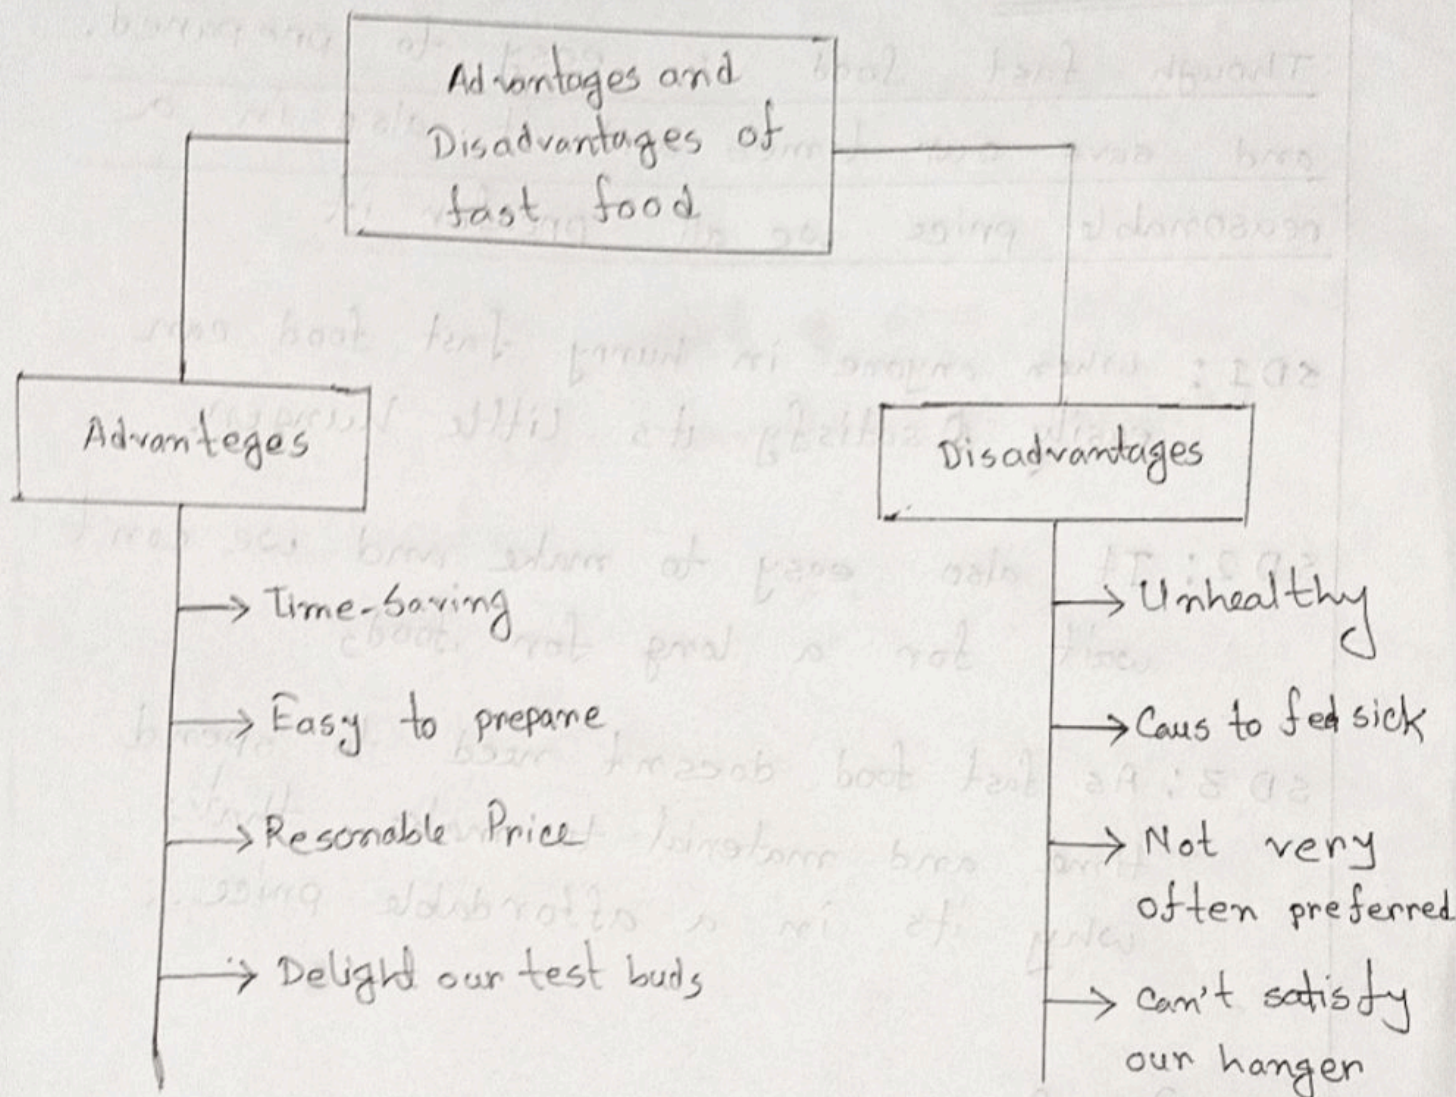 Advantages and
Disadvantages of
fast food
Advanteges
Time-Saving
Easy to prepare
Resonable Price
Delight our test buds
Disadvantages
Unhealthy
Caus to fed sick
Not very
often preferred
Can't satisfy
our hanger